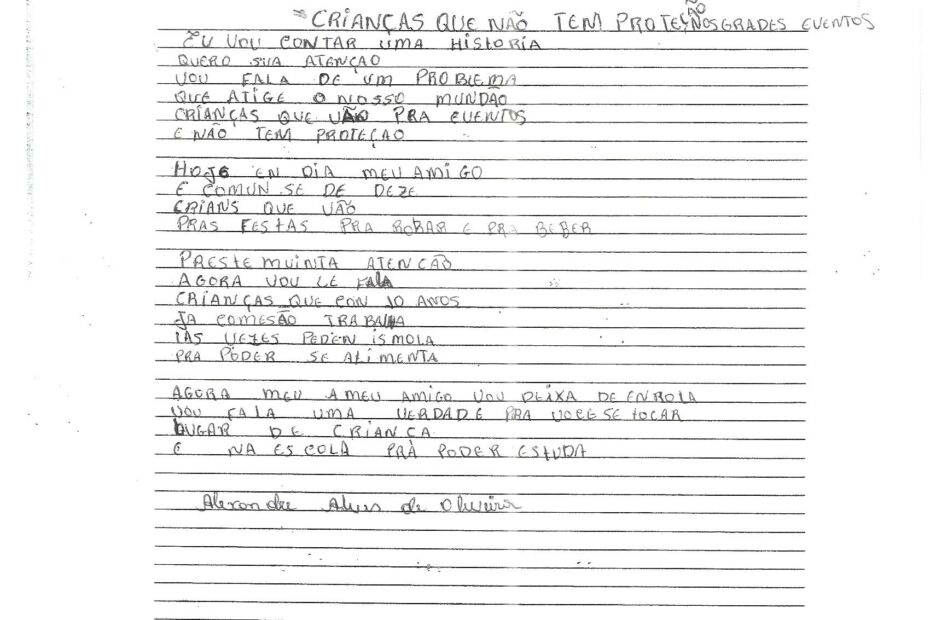 CRIANÇAS QUE NÃO TEM PROTEÇÃO NOS GRADES EVENTOS
EU VOU CONTAR UMA HISTORIA
QUERO SUA ATENÇAO
VOU FALA DE UM PROBLEMA
QUE ATIGE O NOSSO MUNDÃO
CRIANÇAS QUE VÃO PRA EVENTOS
E NÃO TEM PROTEÇAO
HOJE EN DIA MEU AMIGO
E COMUN SE DE DEZE
CRIANS QUE VÃO
PRAS FESTAS PRA ROBAR E PRA BEBER
PRESTE MUINTA ATENCÃO
AGORA VOU LE FALA
CRIANÇAS QUE CON 10 ANOS
JA COMESÃO TRABALHA
IAS VEZES PEDEN ISMOLA
PRA PODER SE ALIMENTA
AGORA MEU AMEU AMIGO VOU DEIXA DE ENROLA
VOU FALA UMA VERDADE PRA VOCE SE TOCAR
LUGAR DE CRIANCA
E NA ESCOLA PRA PODER ESTUDA
Alexandre Alves de Oliveira